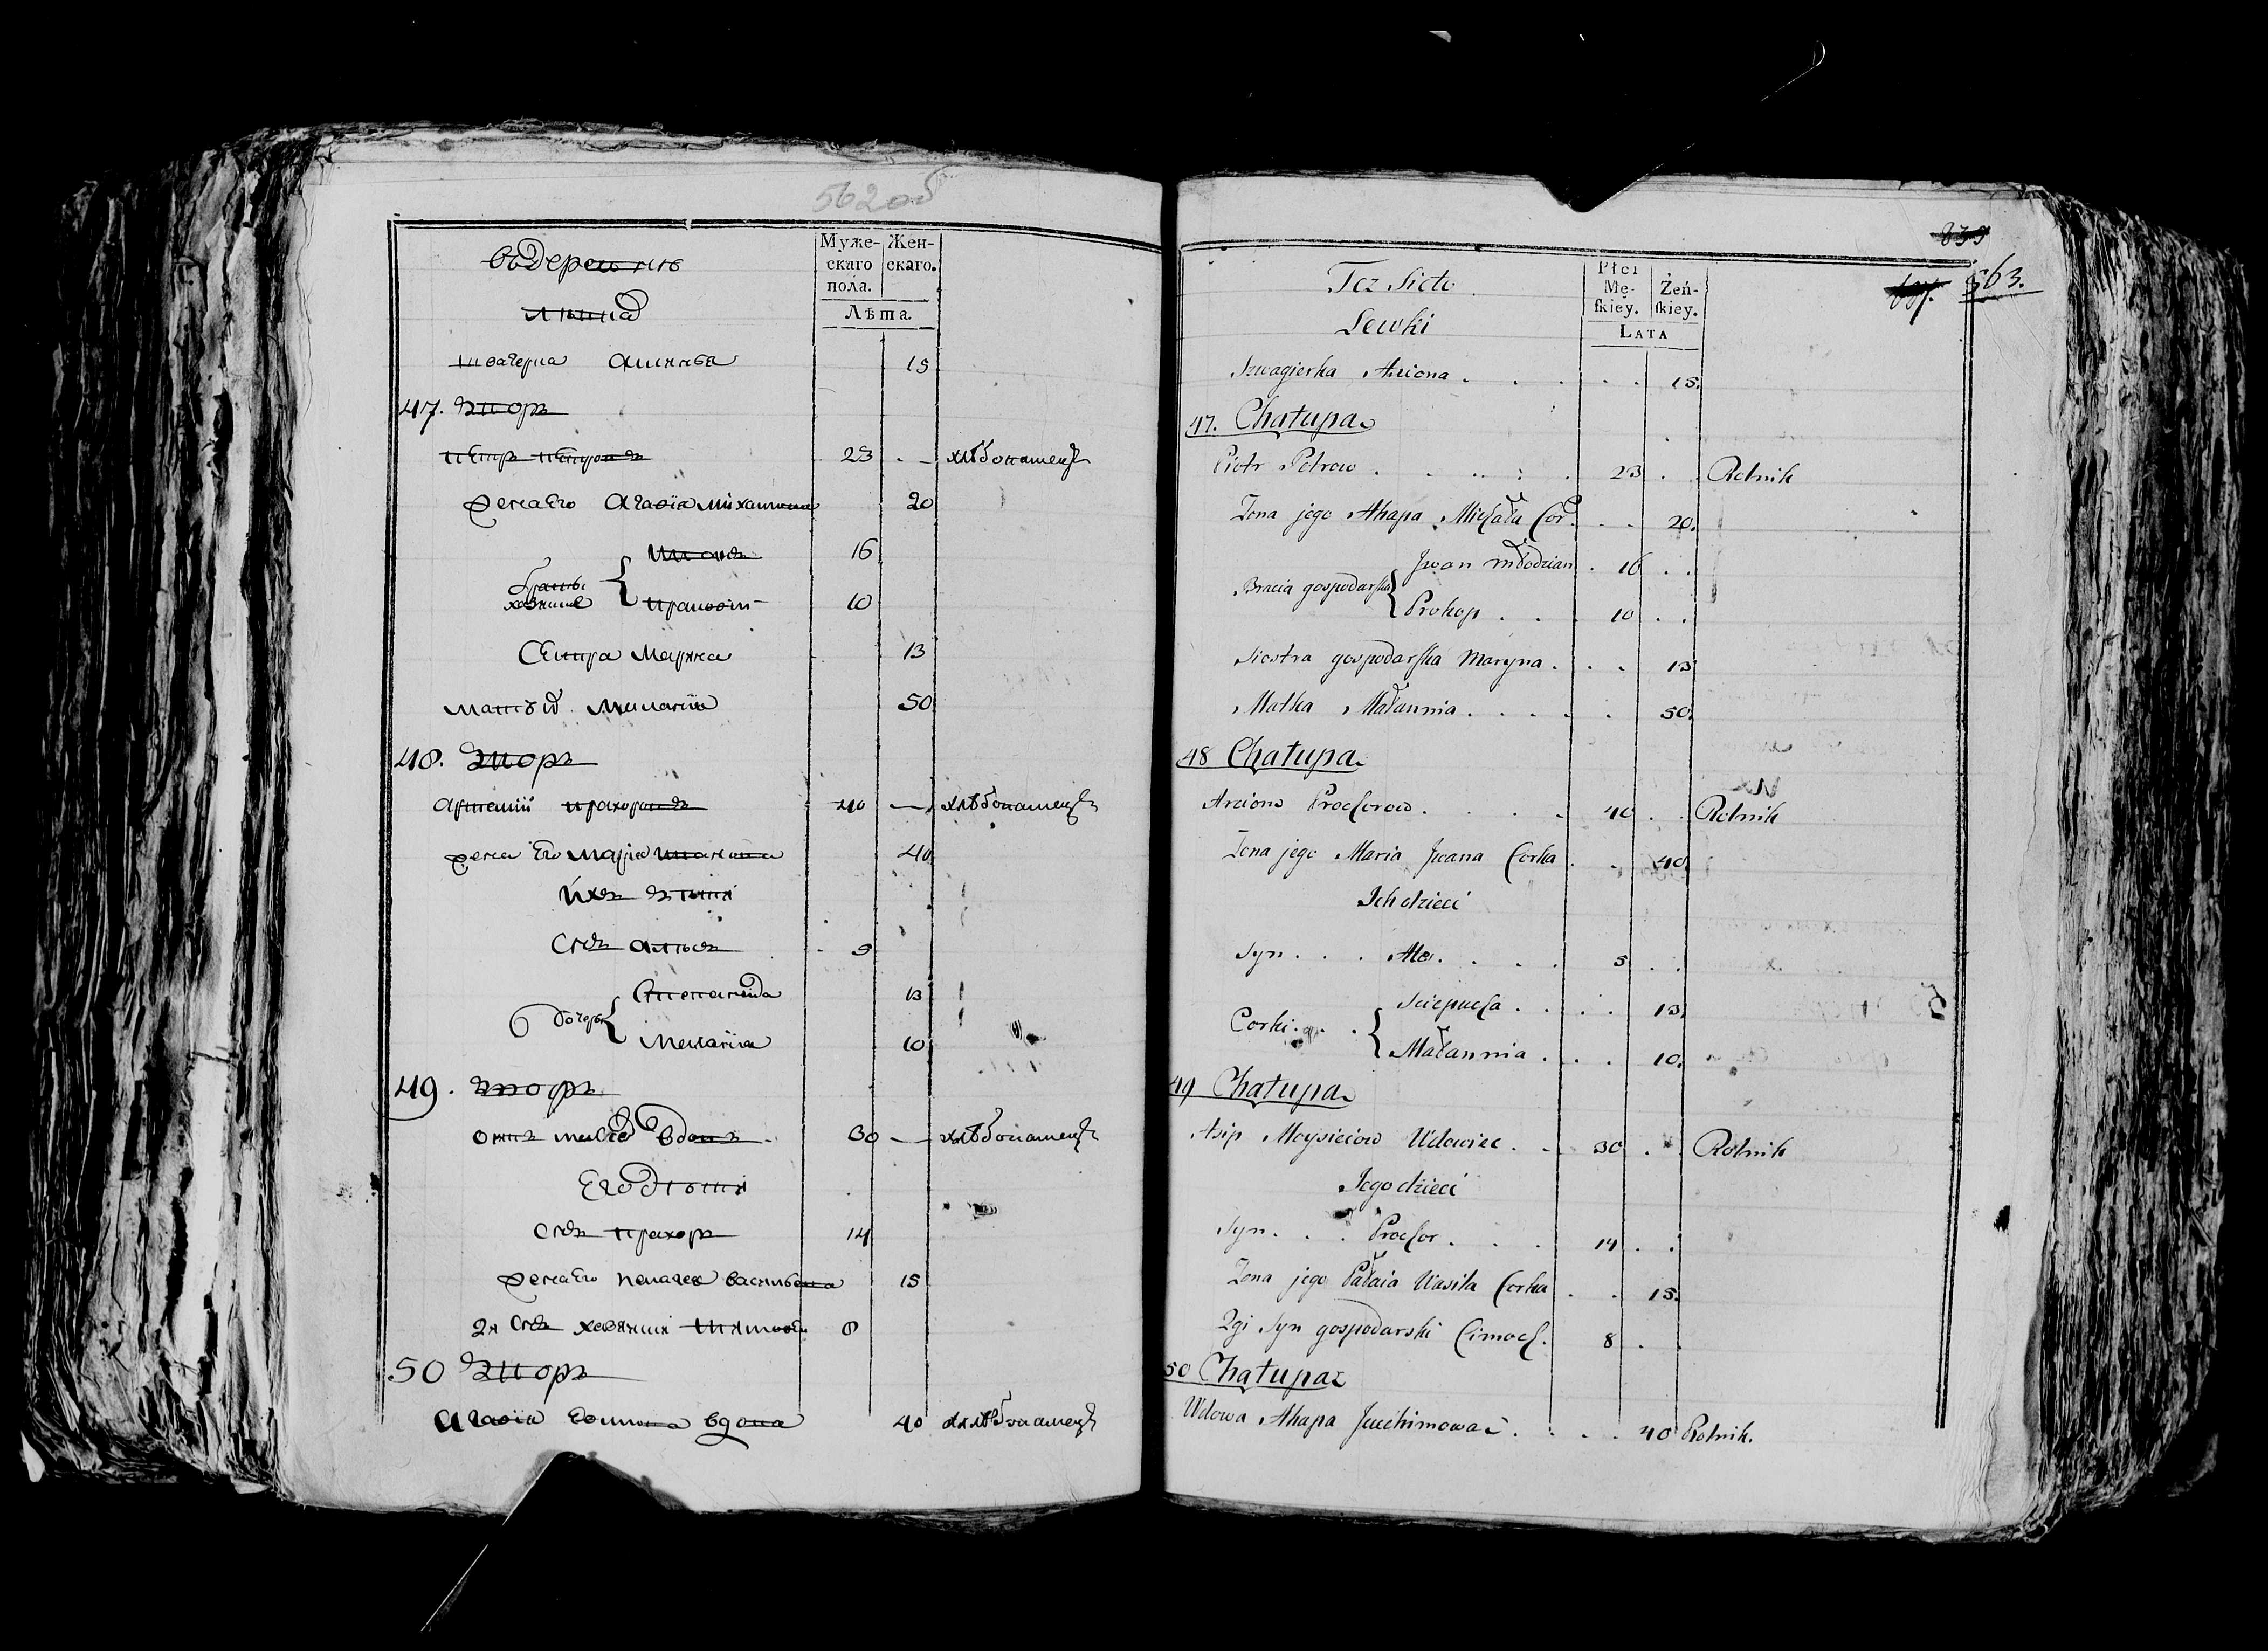 562 об
въ деревнѣ
Муже-
скаго
пола.
Жен-
скаго.
Лѣта.
15
47. дворъ
петръ петровъ 23 хлѣбопашецъ
жена Его Агафія Михайлова 20
братья
хозяина
Иванъ 16
прокопъ 10
Сестра Марина 13
мать их Меланія 50
48. дворъ
Артемій прохоровъ 40 хлѣбопашецъ
жена Его Марія Иванова 40
Ихъ дѣти
Снъ 5
дочери
Степанида 13
Меланія 10
49. дворъ
вдовъ 30 хлѣбопашецъ
Его дѣти
Снъ прохоръ 14
жена Его Пелагея Васильева 15
2й Снъ хозяина Тимофей 8
50 дворъ
Агафія вдова 40 хлѣбопашецъ
563.
Też Sioło
Lewki
Płci
Mę-
skiey.
Żeń-
skiey.
LATA
Szwagierka 15.
47. Chałupa
Piotr Petrow 23 Rolnik
Żona jego Ahapa Michała Cor. 20.
Bracia gospodarska
Jwan młodzian 16
Prokop 10
Siostra gospodarska Maryna 13
Matka Małannia 50.
48 Chałupa
Arciom Prochorow 40 Rolnik
Żona jego Maria Jwana Corka 40
Ich dzieci
Syn 5
Corki
Sciepucha 13
Małannia 10.
49 Chałupa
Asip Moysieiow Wdowiec 30 Rolnik
Jego dzieci
Syn Prochor 14
Żona jego Pałaia Wasila Corka 15.
2gi Syn gospodarski Cimoch 8
50 Chałupa
Wdowa Ahapa Juchimowa 40 Rolnik.